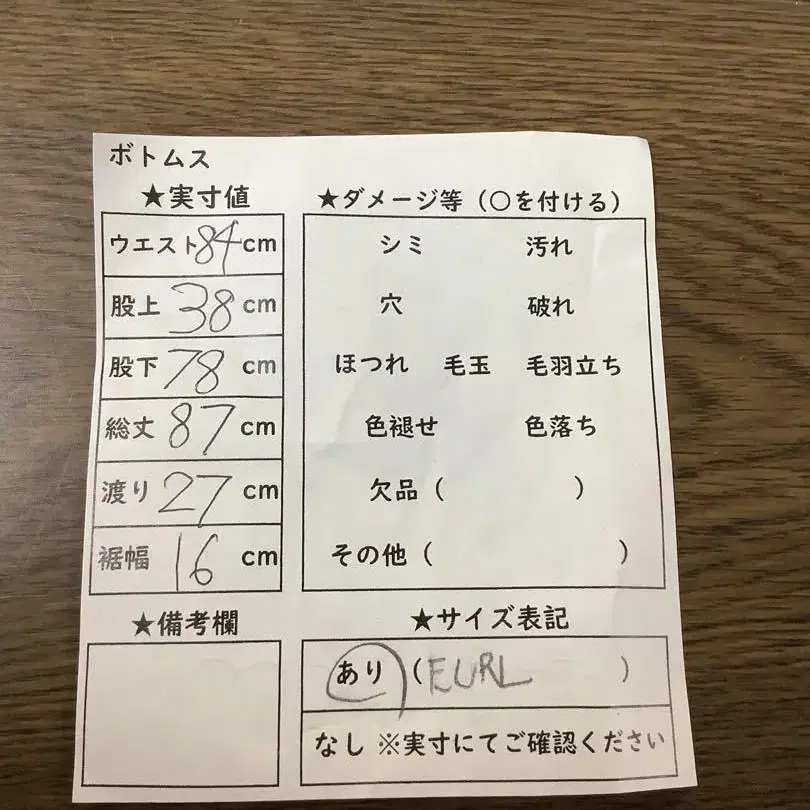 ボトムス
★実寸値
ウエスト84cm
股上 38 cm
股下 78 cm
総丈 87 cm
渡り 27 cm
裾幅 16 cm
★ダメージ等（○を付ける）
シミ 汚れ
穴 破れ
ほつれ 毛玉 毛羽立ち
色褪せ 色落ち
欠品（ ）
その他（ ）
★備考欄
★サイズ表記
あり（EURL ）
なし ※実寸にてご確認ください